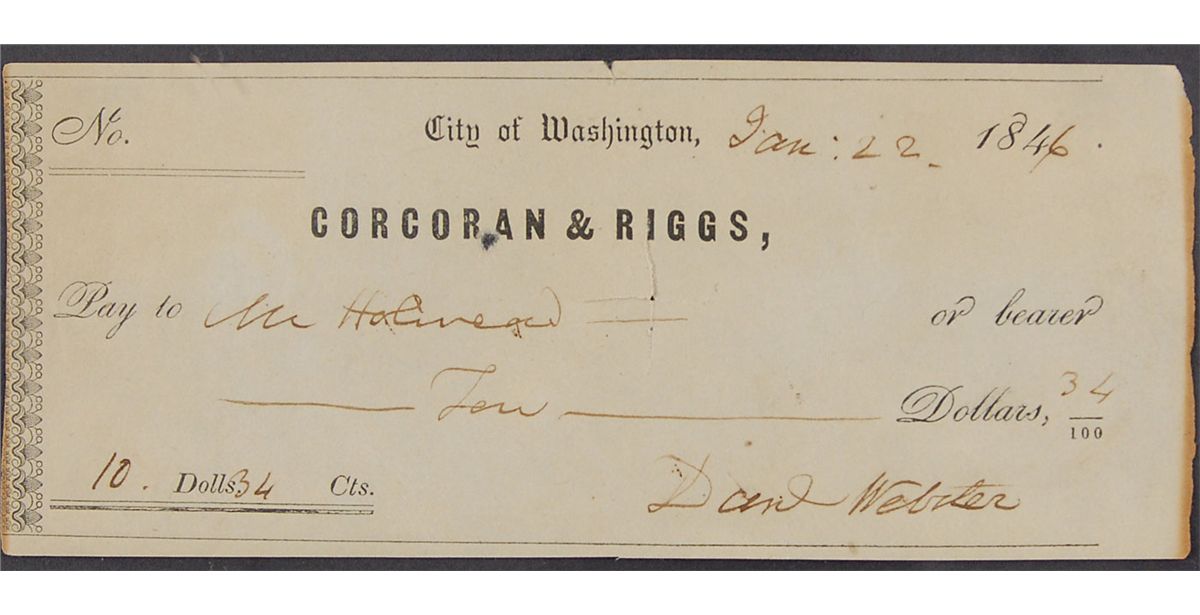 No. City of Washington, Jan: 22. 1846.
CORCORAN & RIGGS,
Pay to Mr Holmead or bearer
Ten Dollars, 34/100
10. Dolls, 34 Cts.
Danl Webster